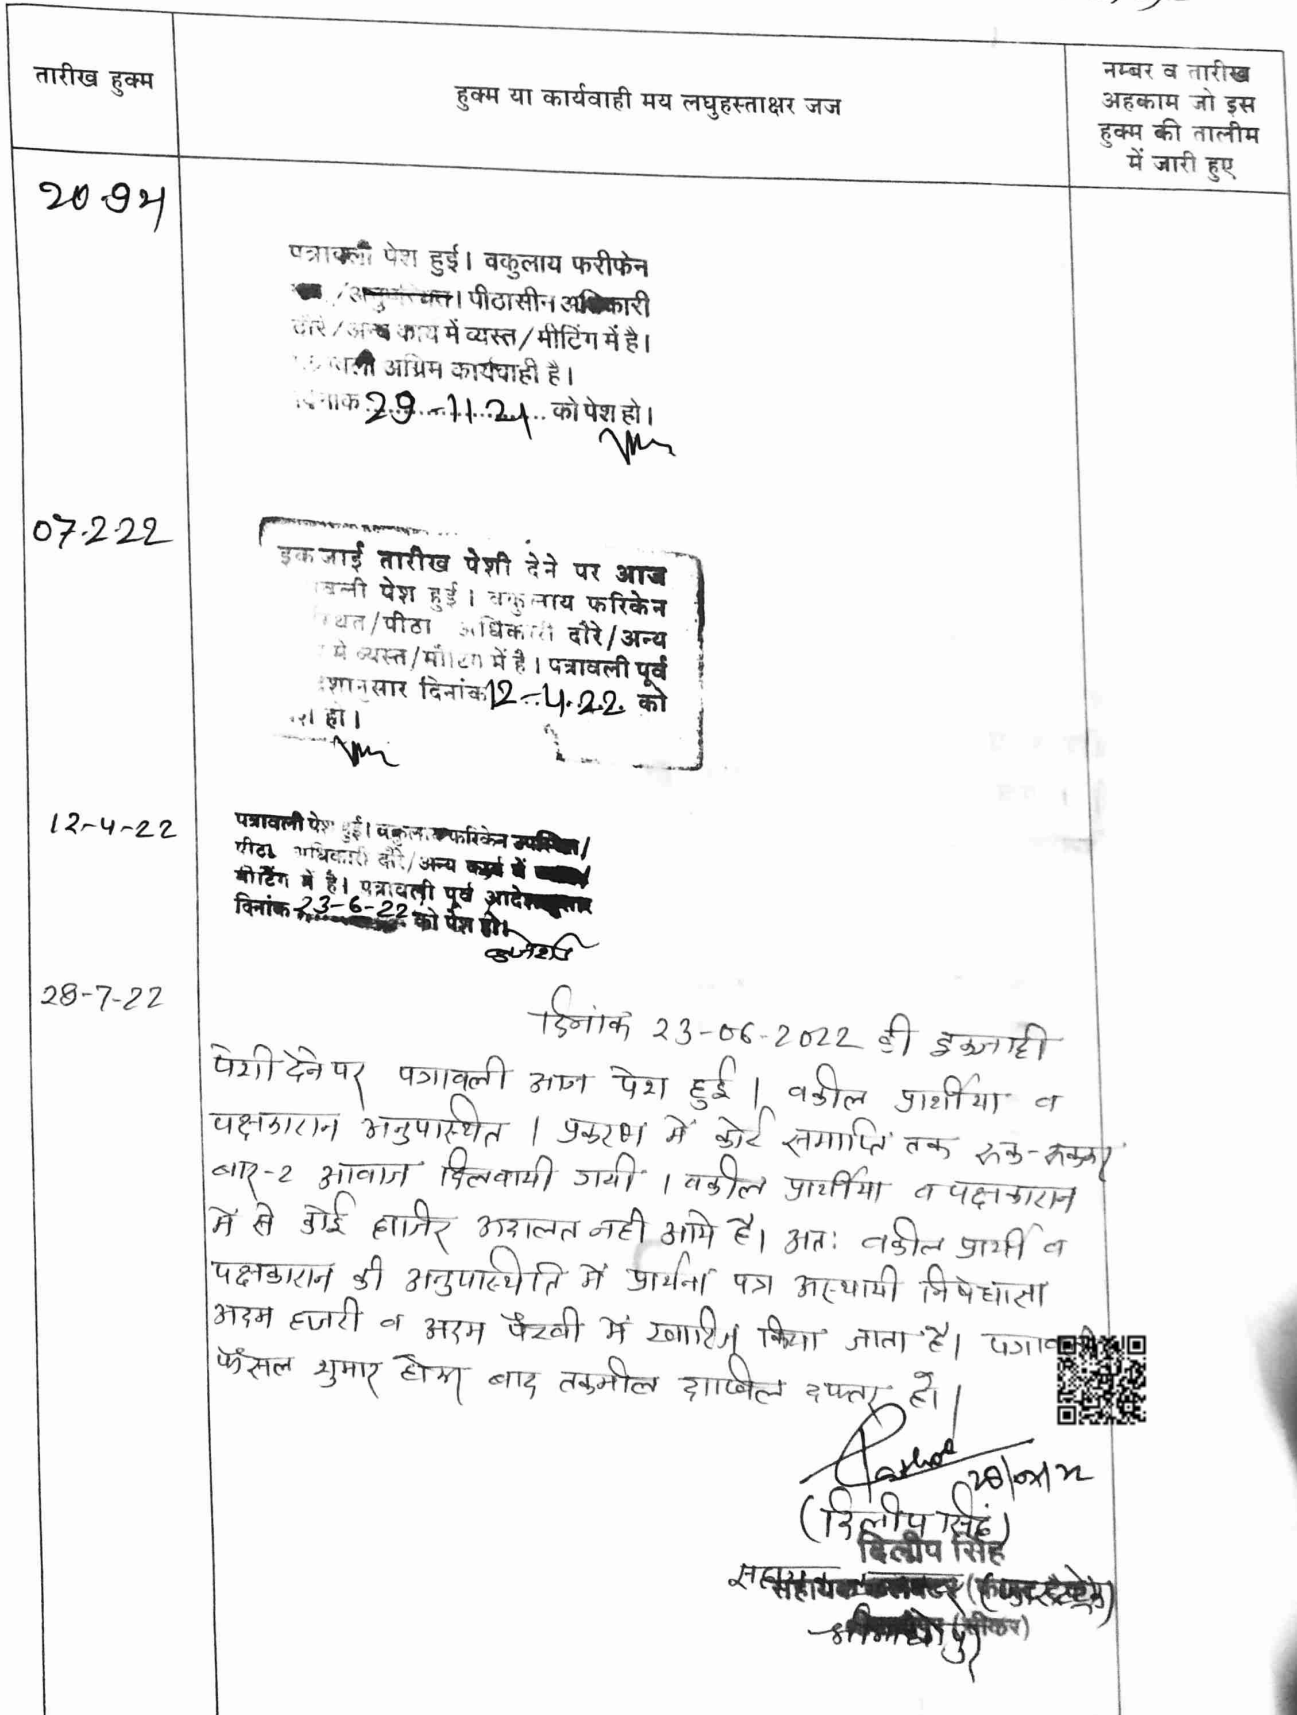 तारीख हुक्म
हुक्म या कार्यवाही मय लघुहस्ताक्षर जज
नम्बर व तारीख
अहकाम जो इस
हुक्म की तालीम
में जारी हुए
पत्रावली पेश हुई। वकुलाय फरीफेन
/अनुपस्थित। पीठासीन अधिकारी
दौरे/अन्य कार्य में व्यस्त/मीटिंग में है।
अग्रिम कार्यवाही है।
दिनांक 29-11-21 को पेश हो।
07.2.22
इकजाई तारीख पेशी देने पर आज
पेश हुई। वकुलाय फरिकेन
/पीठा अधिकारी दौरे/अन्य
में व्यस्त/मीटिंग में है। पत्रावली पूर्व
दिनांक 12-4-22 को
हो।
12-4-22
पत्रावली पेश हुई। वकुलाय फरिकेन उपस्थित/
पीठा अधिकारी दौरे/अन्य कार्य में
मीटिंग में है। पत्रावली पूर्व
दिनांक 23-6-22 को पेश हो।
28-7-22
दिनांक 23-06-2022 की इकजाही
पेशी देने पर पत्रावली आज पेश हुई। वकील प्रार्थीया व
पक्षकारान अनुपास्थित। प्रकरण में कोर्ट समाप्ति तक रूक-रूककर
बार-2 आवाज दिलवायी गयी। वकील प्रार्थीया व पक्षकारान
में से कोई हाजिर अदालत नही आये है। अतः वकील प्रार्थी व
पक्षकारान की अनुपास्थिति में प्रार्थना पत्र अस्थायी निषेधाज्ञा
अदम हजरी व अदम पैरवी में खारिज किया जाता है।
फैसल शुमार होकर बाद तकमील दाखिल दफ्तर हो।
(दिलीप सिंह)
दिलीप सिंह
सहायक कलक्टर
(सीकर)